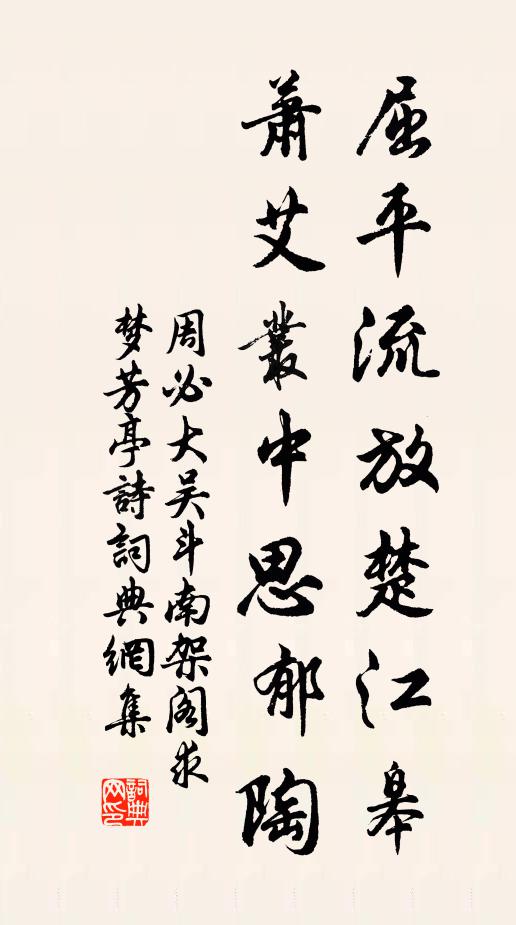 屈平流放楚江皋
蕭艾叢中思郁陶
周必大吴斗南架阁求
梦芳亭詩詞典網集
詞典网印